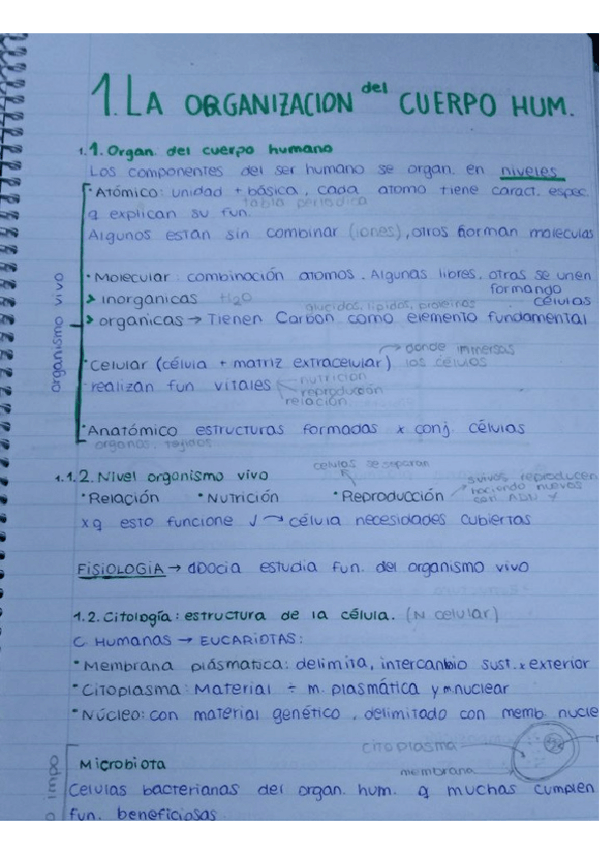 1. LA ORGANIZACION del CUERPO HUM.
1.1. Organ. del cuerpo humano
Los componentes del ser humano se organ. en niveles
· Atómico: unidad + básica, cada atomo tiene caract. espec.
tabla periodica
q explican su fun.
Algunos estan sin combinar (iones), otros forman moleculas
· Molecular: combinación atomos. Algunas libres, otras se unen
formando
células
> inorganicas H2O
glucidos, lipidos, proteinas
> organicas → Tienen Carbon como elemento fundamental
organismo vivo
· Celular (célula + matriz extracelular) → donde inmersas
las células
- realizan fun vitales
nutrición
reproducción
relación
· Anatómico estructuras formadas x conj. células
organos, tejidos
1.1.2. Nivel organismo vivo
celulas se separan
· Relación · Nutrición · Reproducción
reproducen
haciendo nuevos
con ADN y
xq esto funcione ↓ → célula necesidades cubiertas
FISIOLOGIA → estudia fun. del organismo vivo
1.2. Citología: estructura de la célula. (N celular)
C. Humanas → EUCARIOTAS:
· Membrana plásmatica: delimita, intercambio sust. x exterior
· Citoplasma: Material ÷ m. plasmática y m. nuclear
· Núcleo: con material genético, delimitado con memb. nucle
citoplasma
membrana
o impo
Microbiota
Celulas bacterianas del organ. hum. q muchas cumplen
fun. beneficiosas